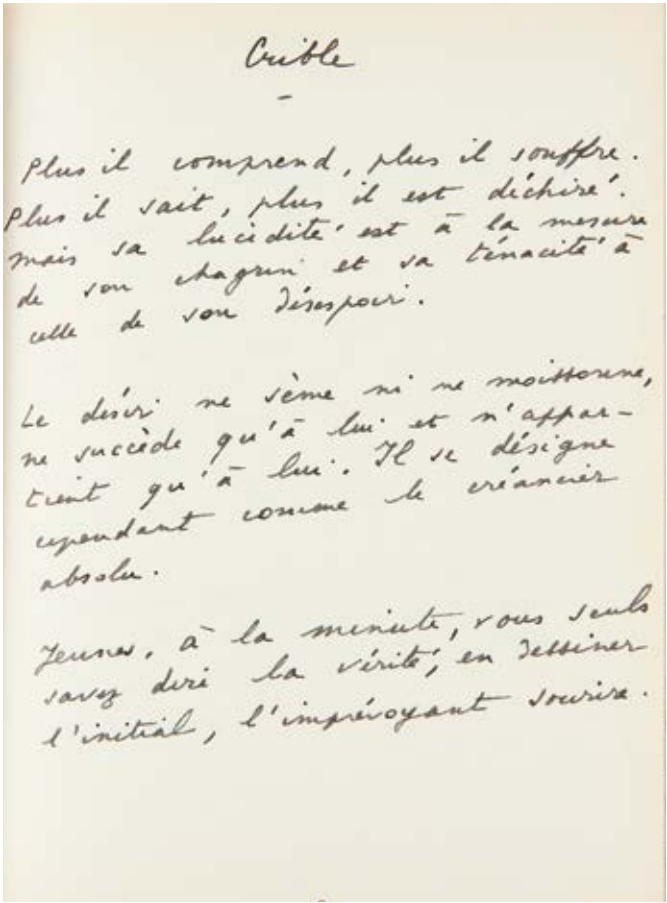 Crible
Plus il comprend, plus il souffre.
Plus il sait, plus il est déchiré.
mais sa lucidité est à la mesure
de son chagrin et sa ténacité à
celle de son désespoir.
Le désir ne sème ni ne moissonne,
ne succède qu'à lui et n'appar-
tient qu'à lui. Il se désigne
cependant comme le créancier
absolu.
Jeunes, à la minute, vous seuls
savez dire la vérité, en dessiner
l'initial, l'imprévoyant sourire.